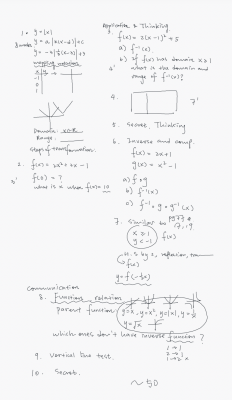 1. y=|x|
y = a |k(x-d)|+c
y = -2|½(x-3)|+5
mapping notation
x | y
-1
0
1
Domain: x∈R
Range:
Steps of transformation.
2. f(x) = 2x²+3x-1
3' f(x) = ?
what is x when f(x)=10
Application & Thinking
3. f(x) = 2(x-1)²+5
a) f⁻¹(x)
b) If f(x) has domain x≥1
4' what is the domain and
range of f⁻¹(x)?
4.
7'
5. Secret Thinking
6. Inverse and comp.
f(x) = 3x+1
g(x) = x²-1
a) f∘g
b) f⁻¹(x)
c) f⁻¹∘g∘g⁻¹(x)
7. Similar to
x ≥ 1
y < -1
f(x)
f(x)
y = f(-½x)
Communication
8. function relation
parent function
y=x, y=x², y=|x|, y=1/x
y=√x
which ones don't have inverse function?
9. Vertical line test.
10. Secret.
~50